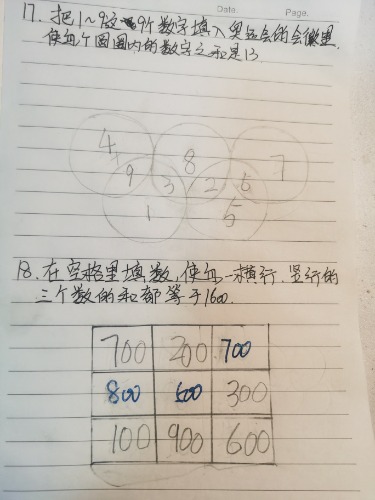 Date. Page.
17. 把1~9这9个数字填入奥运会的会徽里,
使每个圆圈内的数字之和是13
4 8 7
9 3 2 6
1 5
18. 在空格里填数,使每一横行、竖行的
三个数的和都等于1600.
700 200 700
800 500 300
100 900 600